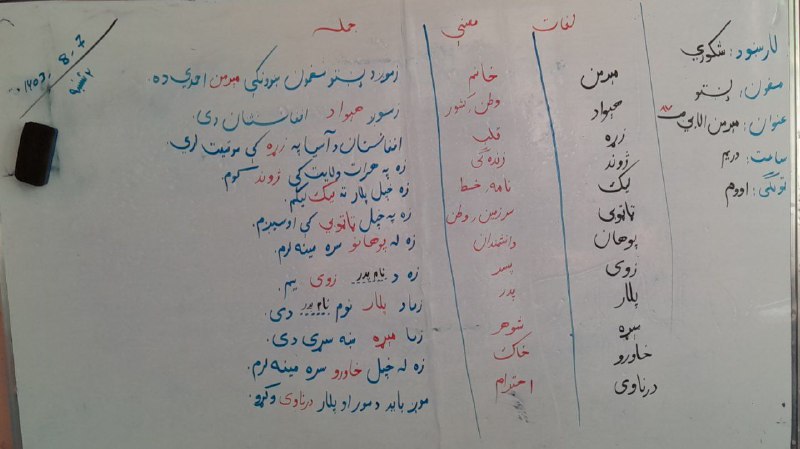 لغات معنی جمله
لارښود: شکوري
مضمون: پښتو
عنوان: میرمن
ساعت: دریم
ټولګی: اووم
۱۴۰۳ - 8 - 7
۲ شنبه
میرمن خانم زموږ د پښتو مضمون ښوونکې میرمن احمدي ده.
هېواد وطن، کشور زموږ هېواد افغانستان دی.
زړه قلب افغانستان د آسیا په زړه کې موقعیت لري.
ژوند زندگی زه په هرات ولایت کې ژوند کوم.
لیک نامه، خط زه خپل پلار ته لیک لیکم.
ټاټوبی سرزمین، وطن زه په خپل ټاټوبي کې اوسېږم.
پوهان دانشمندان زه له پوهانو سره مینه لرم.
زوی پسر زه د نام پدر زوی یم.
پلار پدر زما د پلار نوم نام پدر دی.
مېړه شوهر زما مېړه ښه سړی دی.
خاورو خاک زه له خپل خاورو سره مینه لرم.
درناوی احترام موږ باید د مور او پلار درناوی وکړو.